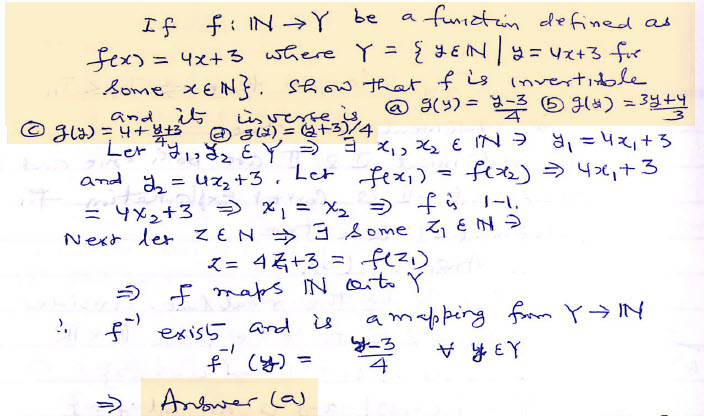 If f : ℕ → Y be a function defined as
f(x) = 4x+3 where Y = { y ∈ ℕ | y = 4x+3 for
some x ∈ ℕ}. Show that f is invertible
and its inverse is ⓐ g(y) = (y-3)/4 ⓑ g(y) = (3y+4)/3
ⓒ g(y) = 4 + (y+3)/4 ⓓ g(y) = (y+3)/4
Let y₁, y₂ ∈ Y ⇒ ∃ x₁, x₂ ∈ ℕ ∋ y₁ = 4x₁+3
and y₂ = 4x₂+3. Let f(x₁) = f(x₂) ⇒ 4x₁+3
= 4x₂+3 ⇒ x₁ = x₂ ⇒ f is 1-1.
Next let z ∈ N ⇒ ∃ some z₁ ∈ ℕ ∋
z = 4z₁+3 = f(z₁)
⇒ f maps ℕ onto Y
∴ f⁻¹ exist and is a mapping from Y → ℕ
f⁻¹(y) = (y-3)/4 ∀ y ∈ Y
⇒ Answer (a)